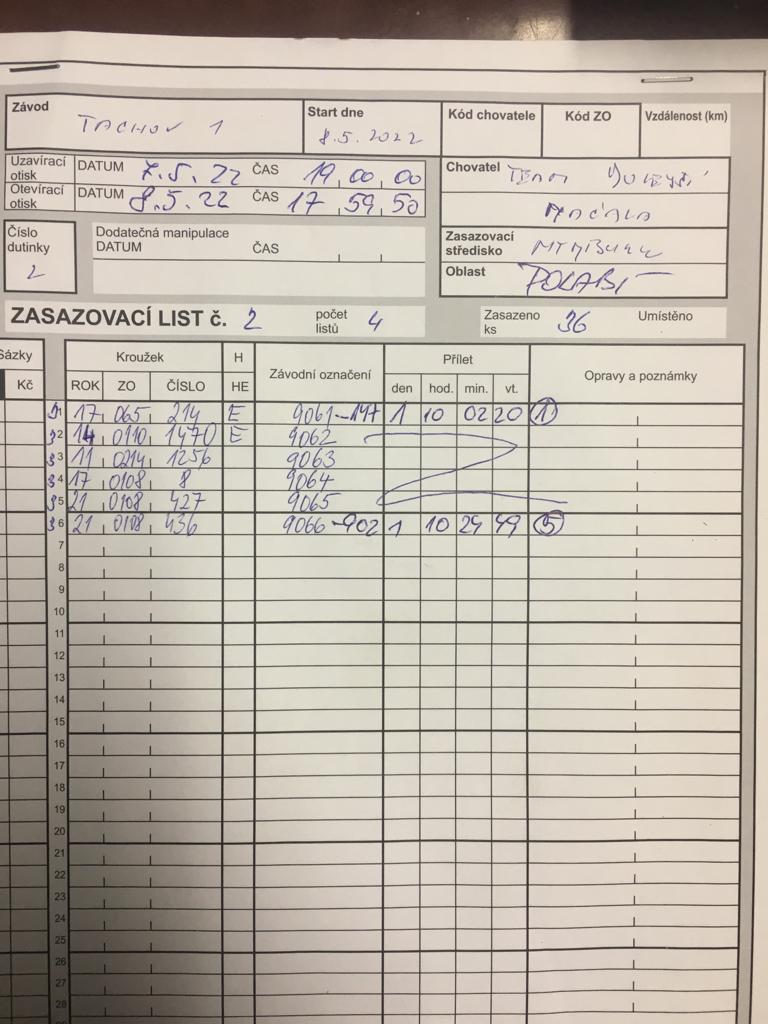 Závod TACHOV 1
Start dne 8.5.2022
Kód chovatele
Kód ZO
Vzdálenost (km)
Uzavírací otisk DATUM 7.5.22 ČAS 19,00,00
Otevírací otisk DATUM 8.5.22 ČAS 17,59,50
Chovatel TEAM
MAČALA
Číslo dutinky 2
Dodatečná manipulace
DATUM ČAS
Zasazovací středisko
Oblast POLABÍ
ZASAZOVACÍ LIST č. 2 počet listů 4 Zasazeno ks 36 Umístěno
Sázky Kroužek H Závodní označení Přílet Opravy a poznámky
Kč ROK ZO ČÍSLO HE den hod. min. vt.
1 17 065 214 E 9061-147 1 10 02 20 1
2 14 0110 1470 E 9062
3 11 0214 1256 9063
4 17 0108 8 9064
5 21 0108 427 9065
6 21 0108 436 9066-902 1 10 24 49 5
7
8
9
10
11
12
13
14
15
16
17
18
19
20
21
22
23
24
25
26
27
28